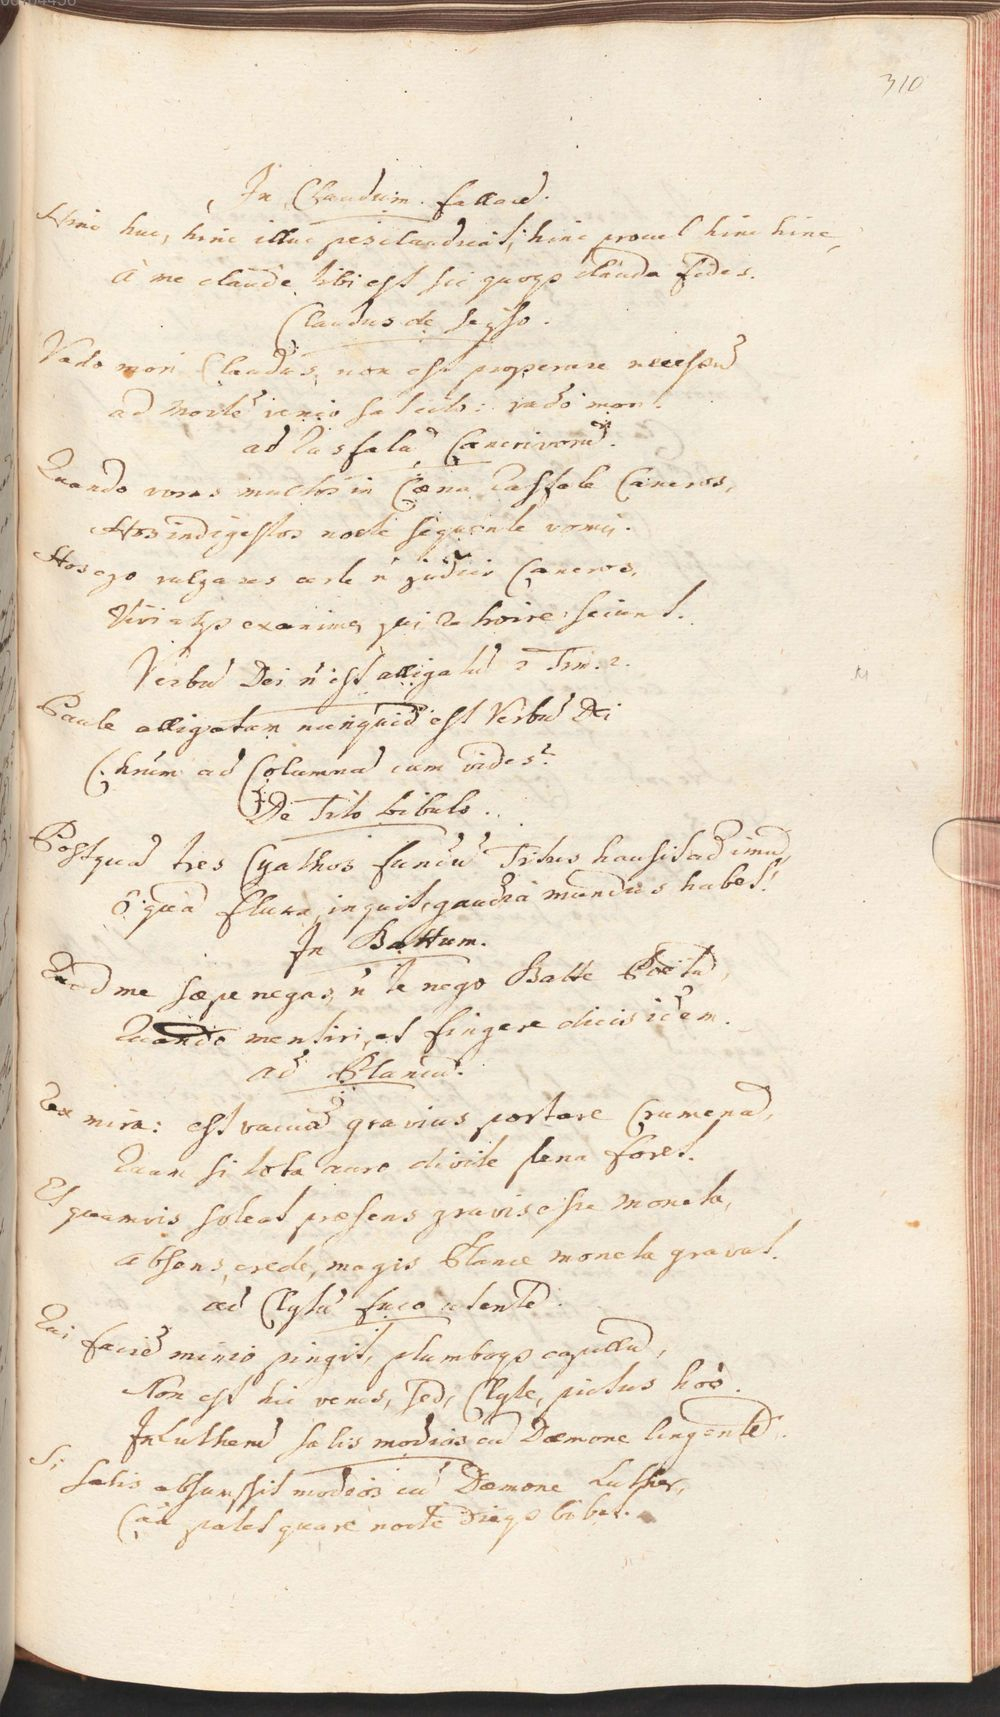 310
In Claudum fallacē.
Hinc huc, hinc illuc pes claudicat, hinc procul hinc hinc,
à me claude, tibi est sic quoqꝫ clauda fides.
Claudus de seipso.
Vado mori Claudus, non est properare necessū
ad mortē venio sat citò: vado mori.
ad Cancrivorū.
Quando voras multos in Cœna Cancros,
Hos indigestos nocte sequente vomis.
Hos ego vulgares certe n̄ judico Cancros,
Vivi atqꝫ exanimes qui retroire sciunt.
Verbū Dei n̄ est alligatū 2 Tim. 2.
Paule alligatum nunquid est Verbū Dei
Chrūm ad Columnā cum vides?
De Tito bibulo.
Postquā tres Cyathos fundū Titus hausit ad imū,
O quā fluxa, inquit, gaudia mundus habet!
In Battum.
Quod me sæpe negas, n̄ te nego Batte Poëtā,
Quando mentiri, et fingere dicis idem.
ad Plancū.
Res mira: est vacuā gravius portare Crumenā,
Quam si tota auro divite plena foret.
Et quamvis soleat præsens gravis esse moneta,
absens, crede, magis Plance moneta gravat.
ad Clytū fuco utentē.
Qui faciē minio pingit, plumboqꝫ capillū,
Non est hic verus, sed, Clyte, pictus homo.
In Lutherū salis modios cū Dæmone lingentē.
Si salis absumpsit modios cū Dæmone Luther,
Caā patet quare nocte dieqꝫ bibat.